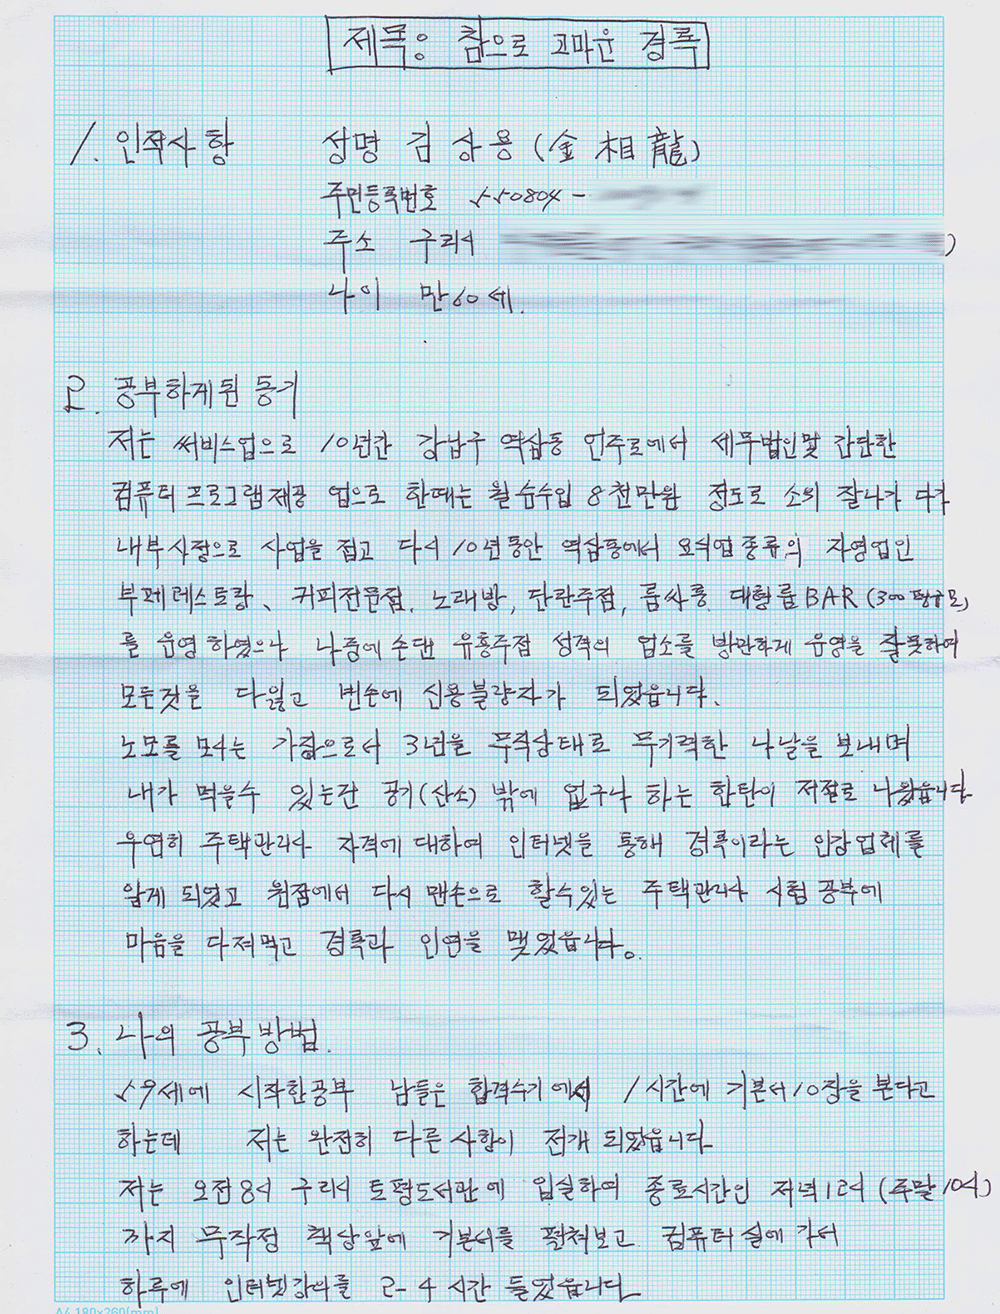 제목: 참으로 고마운 경록
1. 인적사항 성명 김상용(金相龍)
주민등록번호 550804-
주소 구리시 )
나이 만60세.
2. 공부하게된 동기
저는 써비스업으로 10년간 강남구 역삼동 언주로에서 세무법인및 간단한
컴퓨터 프로그램제공 업으로 한때는 월 순수입 8천만원 정도로 소위 잘나가다가
내부사정으로 사업을 접고 다시 10년동안 역삼동에서 요식업종류의 자영업인
부페레스토랑, 커피전문점, 노래방, 단란주점, 룸싸롱 대형룸BAR (300평규모)
를 운영하였으나 나중에 손댄 유흥주점 성격의 업소를 방만하게 운영을 잘못하여
모든것을 다잃고 빈손에 신용불량자가 되었습니다.
노모를 모시는 가장으로서 3년을 무직상태로 무기력한 나날을 보내며
내가 먹을수 있는건 공기(산소) 밖에 없구나 하는 한탄이 저절로 나왔습니다
우연히 주택관리사 자격에 대하여 인터넷을 통해 경록이라는 인강업체를
알게 되었고 원점에서 다시 맨손으로 할수있는 주택관리사 시험공부에
마음을 다져먹고 경록과 인연을 맺었습니다.
3. 나의 공부방법.
59세에 시작한공부 남들은 합격수기에서 1시간에 기본서10장을 본다고
하는데 저는 완전히 다른 사항이 전개 되었습니다
저는 오전8시 구리시 토평도서관에 입실하여 종료시간인 저녁12시 (주말10시)
까지 무작정 책상앞에 기본서를 펼쳐보고 컴퓨터실에 가서
하루에 인터넷강의를 2-4시간 들었습니다
A4 180x260[mm]